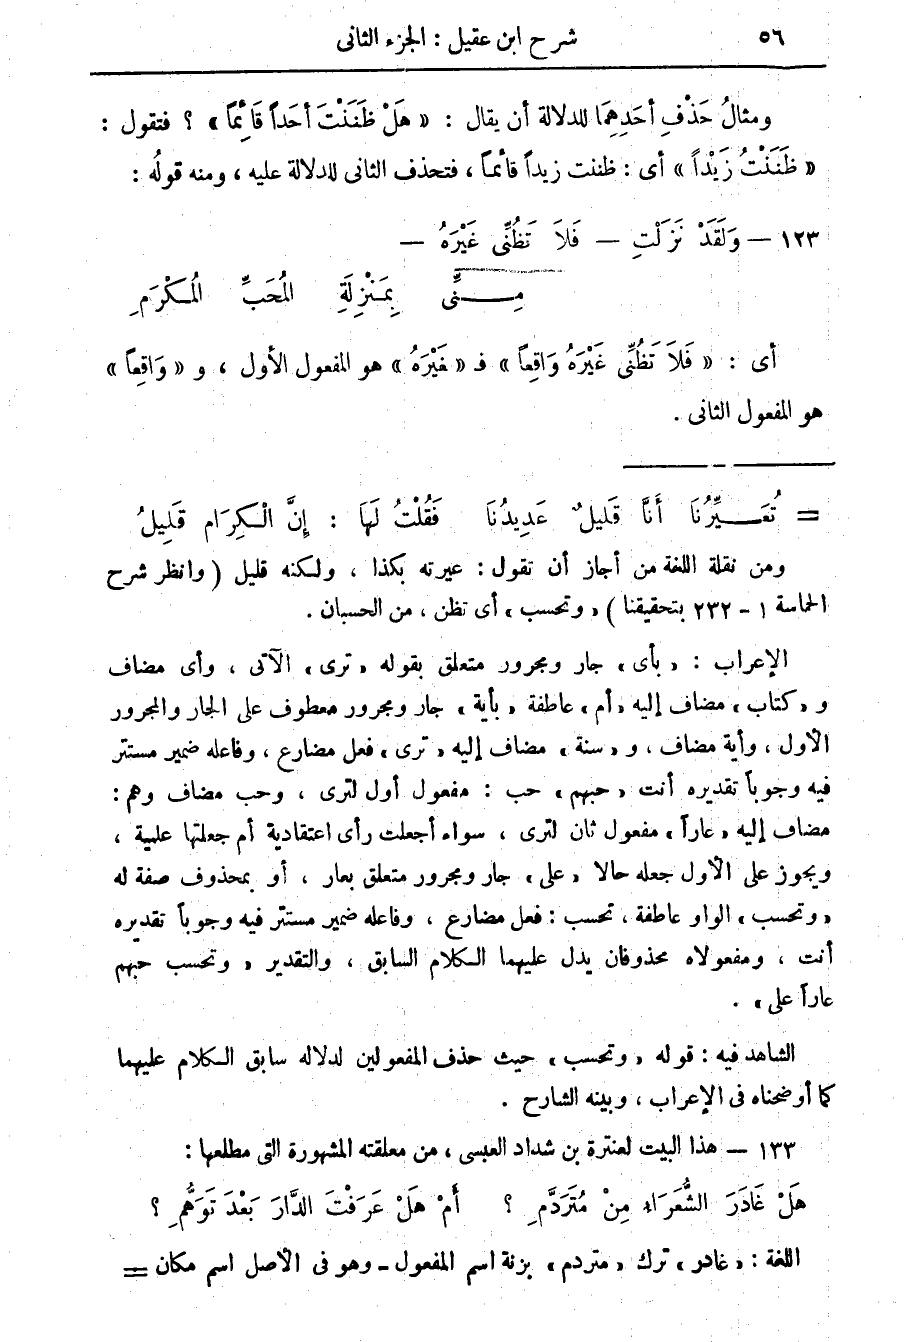 ٥٦ شرح ابن عقيل : الجزء الثانى
ومثالُ حَذْفِ أحَدِهِمَا للدلالة أن يقال : « هَلْ ظَنَنْتَ أحَداً قَائِماً » ؟ فتقول :
« ظَنَنْتُ زَيْداً » أى : ظننت زيداً قائماً ، فتحذف الثانى للدلالة عليه ، ومنه قولُه :
١٢٣ – وَلَقَدْ نَزَلْتِ – فَلاَ تَظُنِّى غَيْرَهُ –
مِـنِّى بِمَنْزِلَةِ المُحَبِّ المُـكْرَمِ
أى : « فَلاَ تَظُنِّى غَيْرَهُ وَاقِعاً » فـ « غَيْرَهُ » هو المفعول الأول ، و « وَاقِعاً »
هو المفعول الثانى .
= تُعَـيِّرُنَا أَنَّا قَلِيلٌ عَدِيدُنَا فَقُلْتُ لَهَا : إِنَّ الْـكِرَام قَلِيلُ
ومن نقلة اللغة من أجاز أن تقول : عيرته بكذا ، ولـكنه قليل ( وانظر شرح
الحماسة ١ – ٢٣٢ بتحقيقنا ) « وتحسب » أى تظن ، من الحسبان .
الإعراب : « بأى » جار ومجرور متعلق بقوله « ترى » الآتى ، وأى مضاف
و « كتاب » مضاف إليه « أم » عاطفة « بأية » جار ومجرور معطوف على الجار والمجرور
الأول ، وأية مضاف ، و « سنة » مضاف إليه « ترى » فعل مضارع ، وفاعله ضمير مستتر
فيه وجوباً تقديره أنت « حبهم » حب : مفعول أول لترى ، وحب مضاف وهم :
مضاف إليه « عاراً » مفعول ثان لترى ، سواء أجعلت رأى اعتقادية أم جعلتها علمية ،
ويجوز على الأول جعله حالا « على » جار ومجرور متعلق بعار ، أو بمحذوف صفة له
« وتحسب » الواو عاطفة ، تحسب : فعل مضارع ، وفاعله ضمير مستتر فيه وجوباً تقديره
أنت ، ومفعولاه محذوفان يدل عليهما الـكلام السابق ، والتقدير « وتحسب حبهم
عاراً على » .
الشاهد فيه : قوله « وتحسب » حيث حذف المفعولين لدلاله سابق الـكلام عليهما
كما أوضحناه فى الإعراب ، وبينه الشارح .
١٣٣ – هذا البيت لعنترة بن شداد العبسى ، من معلقته المشهورة التى مطلعها :
هَلْ غَادَرَ الشُّعَرَاءِ مِنْ مُتَرَدَّمِ ؟ أَمْ هَلْ عَرَفْتَ الدَّارَ بَعْدَ تَوَهُّمِ ؟
اللغة : « غادر » ترك « متردم » بزنة اسم المفعول – وهو فى الأصل اسم مكان =